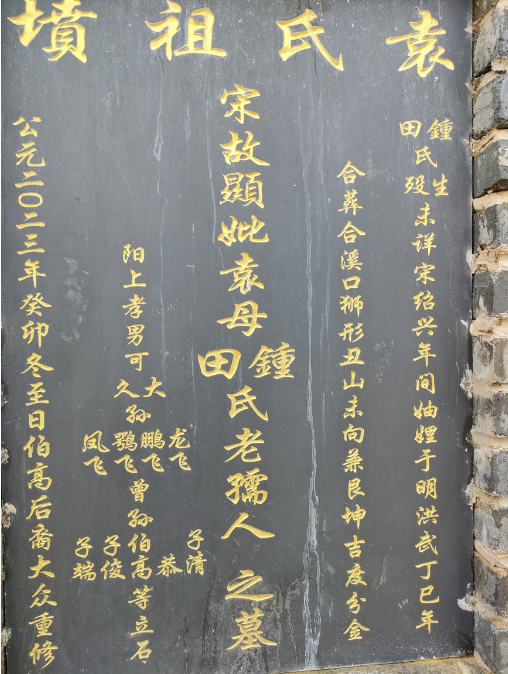 袁氏祖墳
鍾田氏生殁未详宋绍兴年间妯娌于明洪武丁巳年
合葬合溪口狮形丑山未向兼艮坤吉度分金
宋故顯妣袁母鍾田氏老孺人之墓
阳上孝男可大久孙龙飞鹏飞鹗飞凤飞曾孙子清恭伯高子俊子端等立石
公元二〇二三年癸卯冬至日伯高后裔大众重修